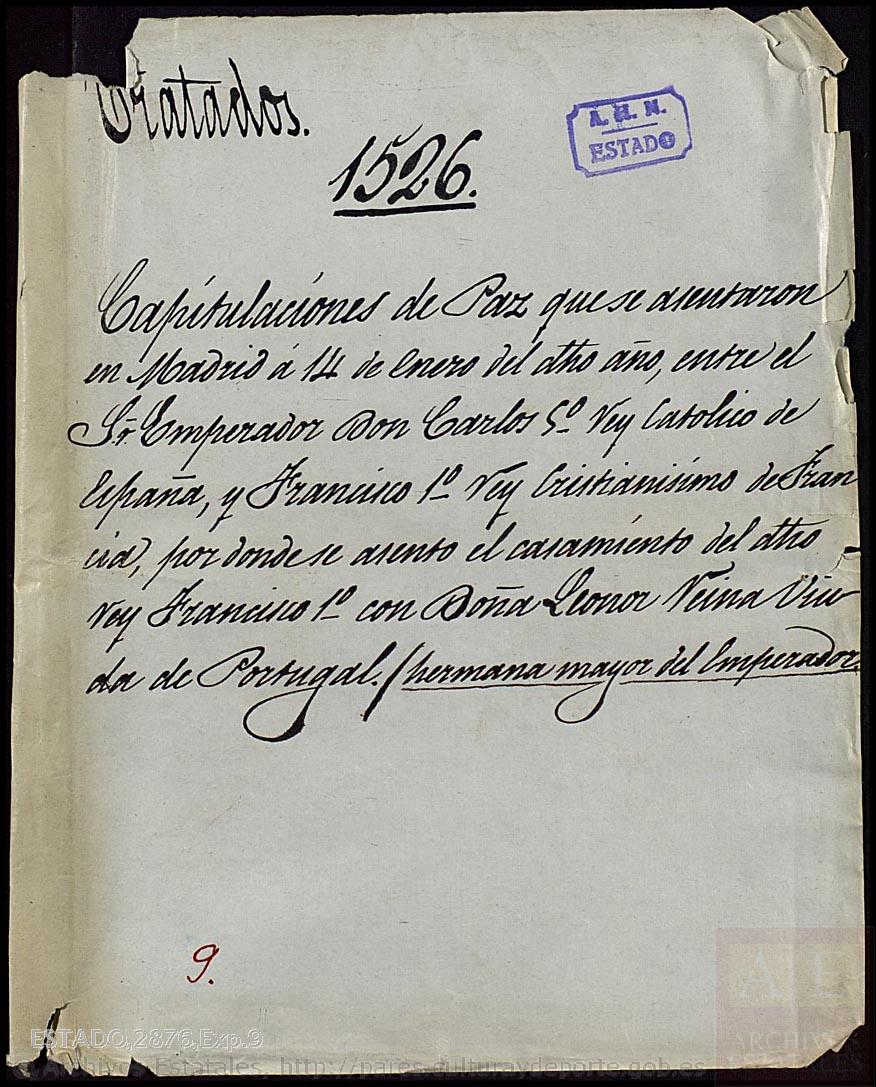 Tratados.
A. H. N.
ESTADO
1526.
Capitulaciones de Paz que se asentaron
en Madrid á 14 de Enero del dho año, entre el
Sr. Emperador Don Carlos 5º Rey Catolico de
España, y Francisco 1º Rey Cristianisimo de Fran
cia, por donde se asento el casamiento del dho
Rey Francisco 1º con Doña Leonor Reina Viu-
da de Portugal./hermana mayor del Emperador.
9.
ESTADO,2876,Exp.9
A E
ARCHIVOS
ESTATALES
© Archivos Estatales, http://pares.culturaydeporte.gob.es